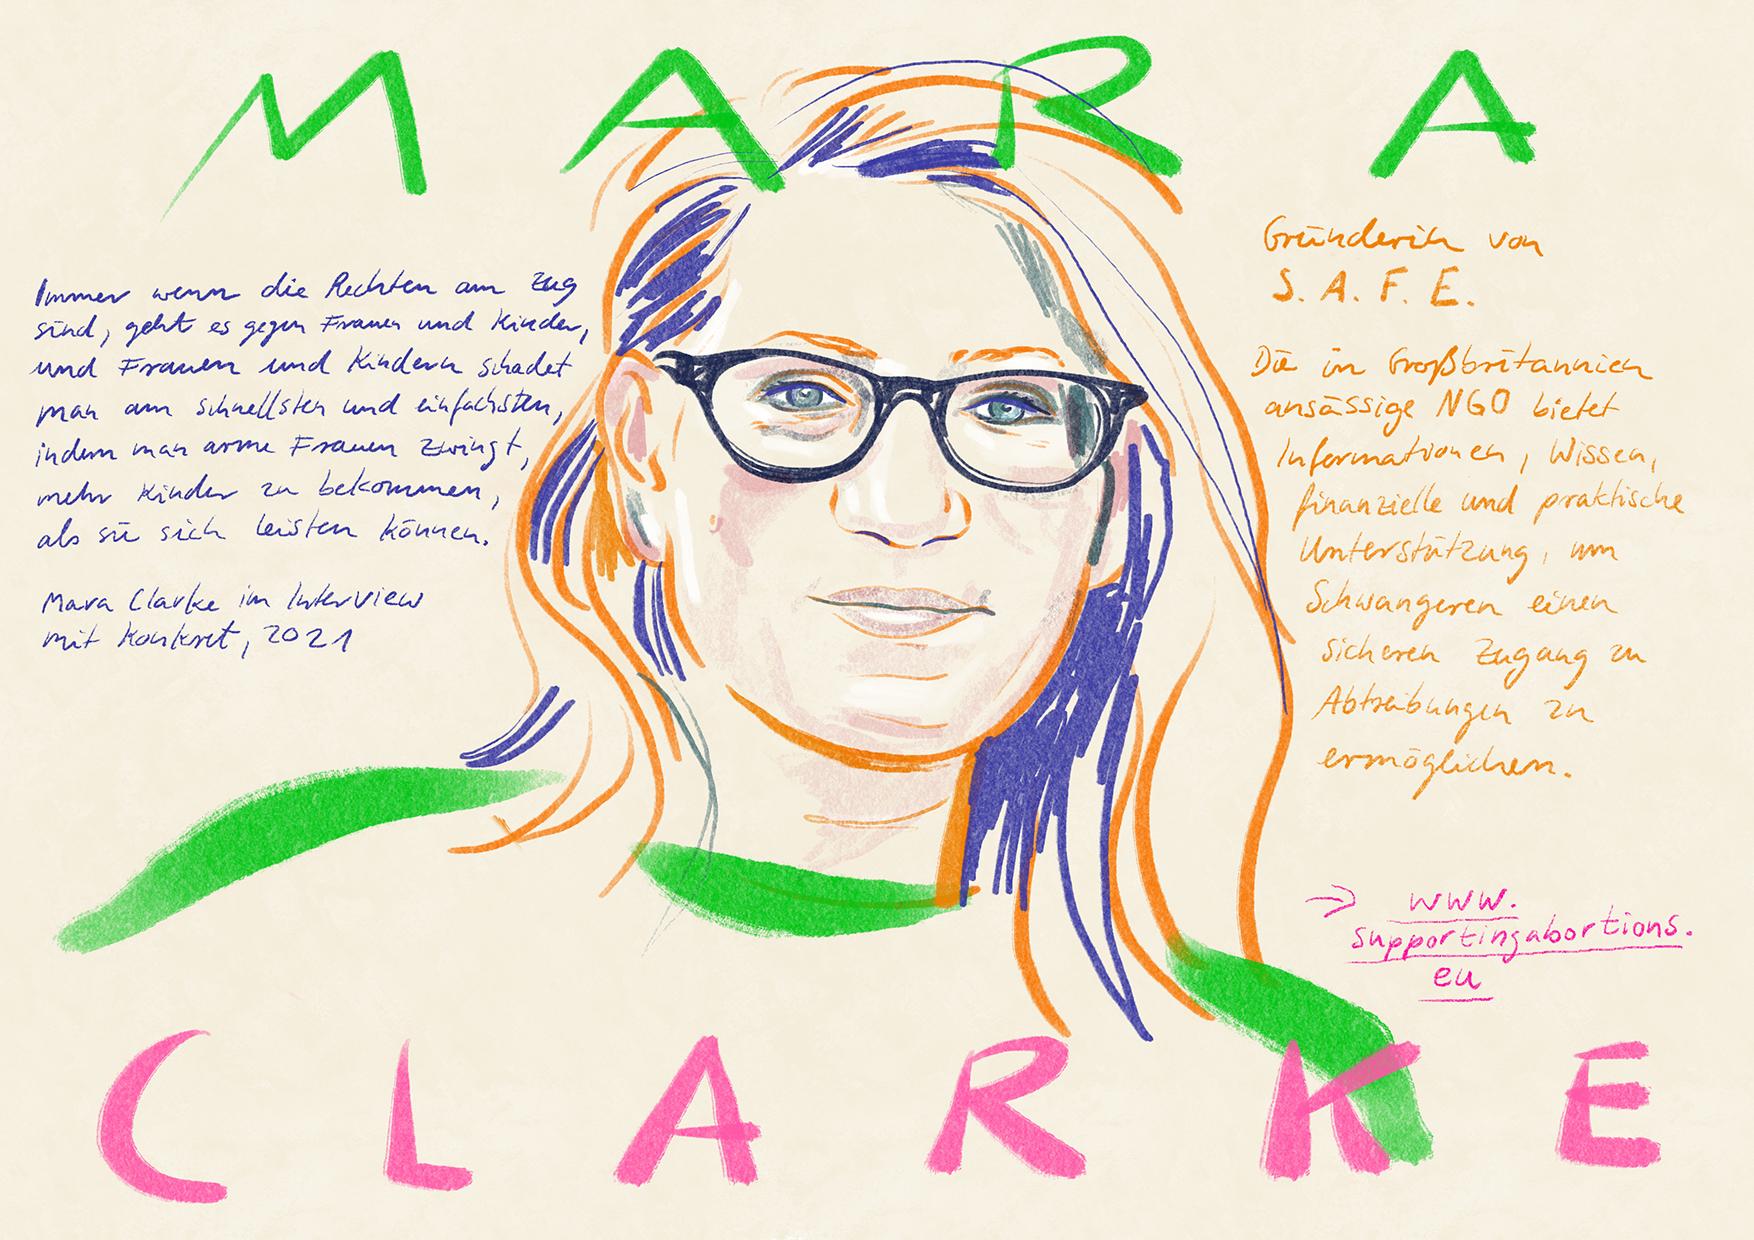 MARA
Immer wenn die Rechten am Zug
sind, geht es gegen Frauen und Kinder,
und Frauen und Kindern schadet
man am schnellsten und einfachsten,
indem man arme Frauen zwingt,
mehr Kinder zu bekommen,
als sie sich leisten können.
Mara Clarke im Interview
mit Konkret, 2021
Gründerin von
S. A. F. E.
Die in Großbritannien
ansässige NGO bietet
Informationen, Wissen,
finanzielle und praktische
Unterstützung, um
Schwangeren einen
sicheren Zugang zu
Abtreibungen zu
ermöglichen.
→ www.
supportingabortions.
eu
CLARKE